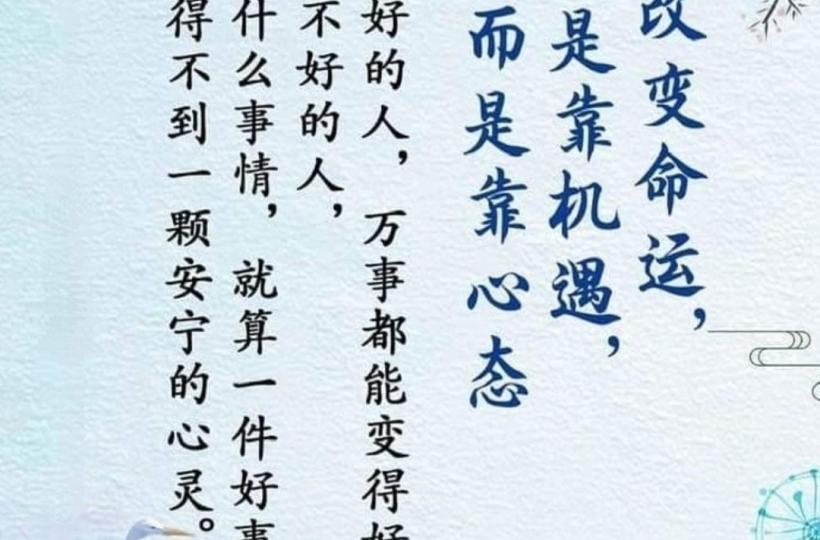 改变命运，
是靠机遇，
而是靠心态
好的人，万事都能变得好
不好的人，
什么事情，就算一件好事
得不到一颗安宁的心灵。